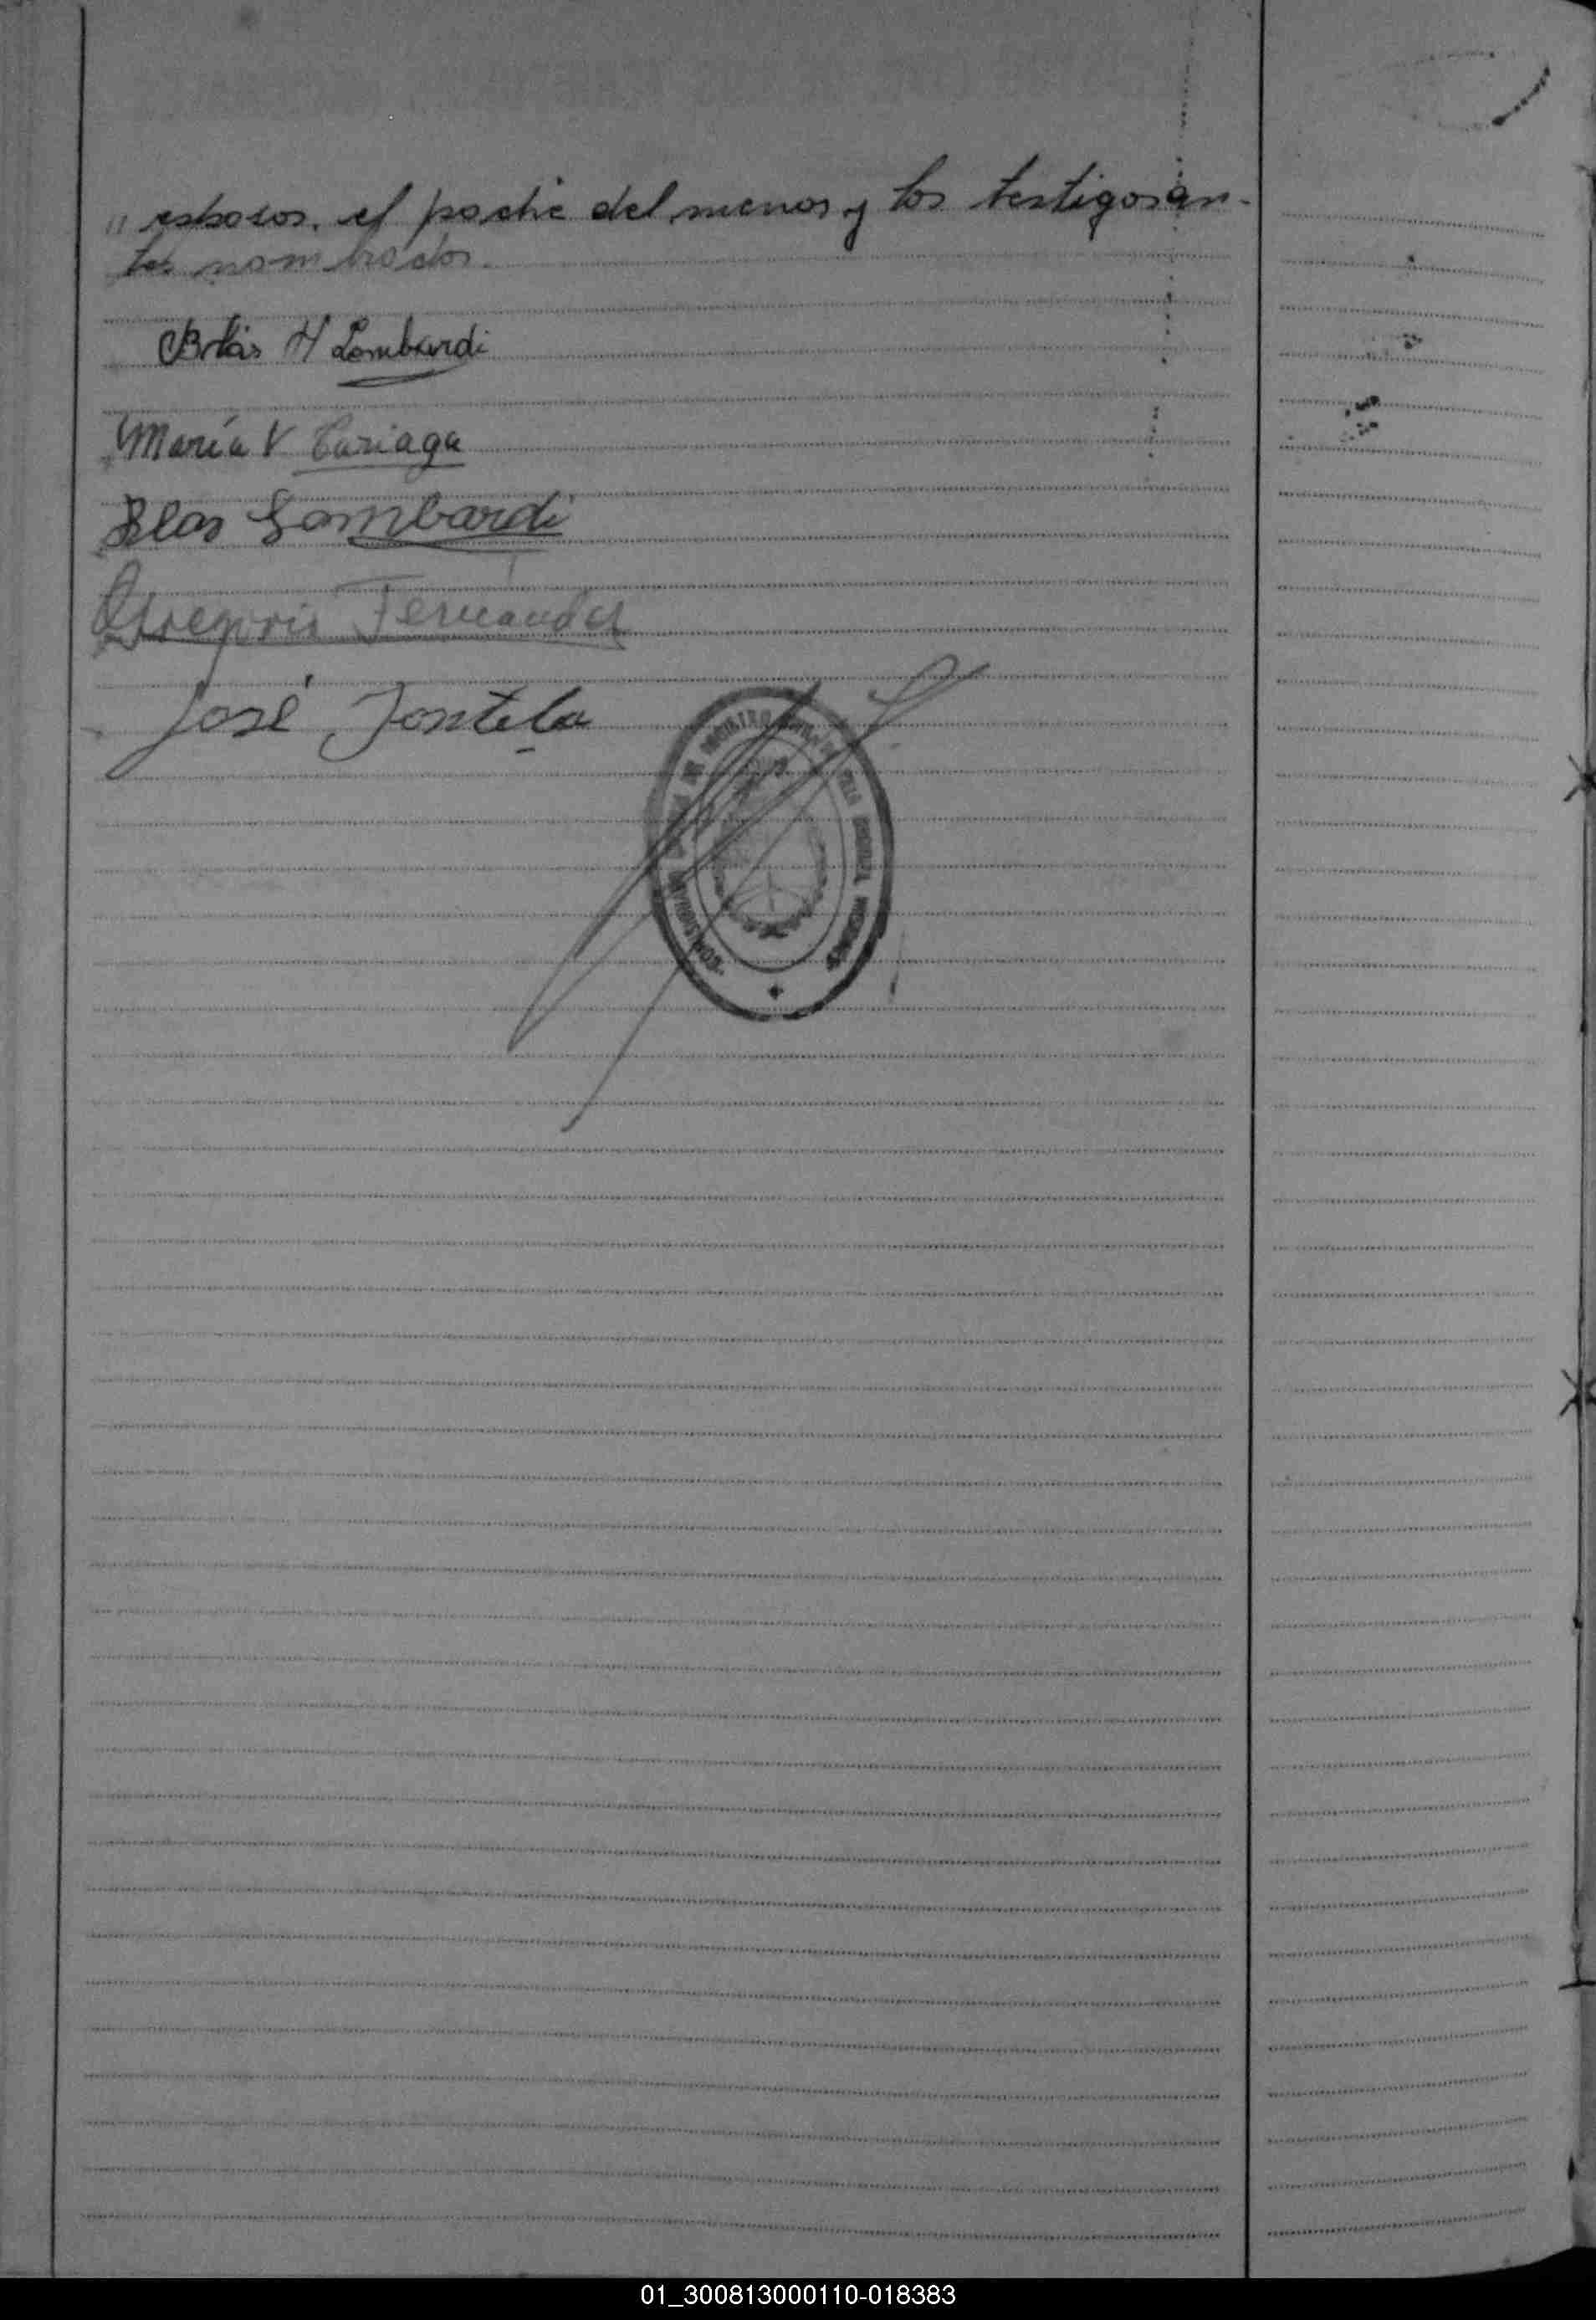 " esposos, el padre del menor y los testigos an-
tes nombrados.
Blás H Lombardi
María V Cariaga
Blas Lombardi
Gregorio Fernandez
José Fontela
01_300813000110-018383